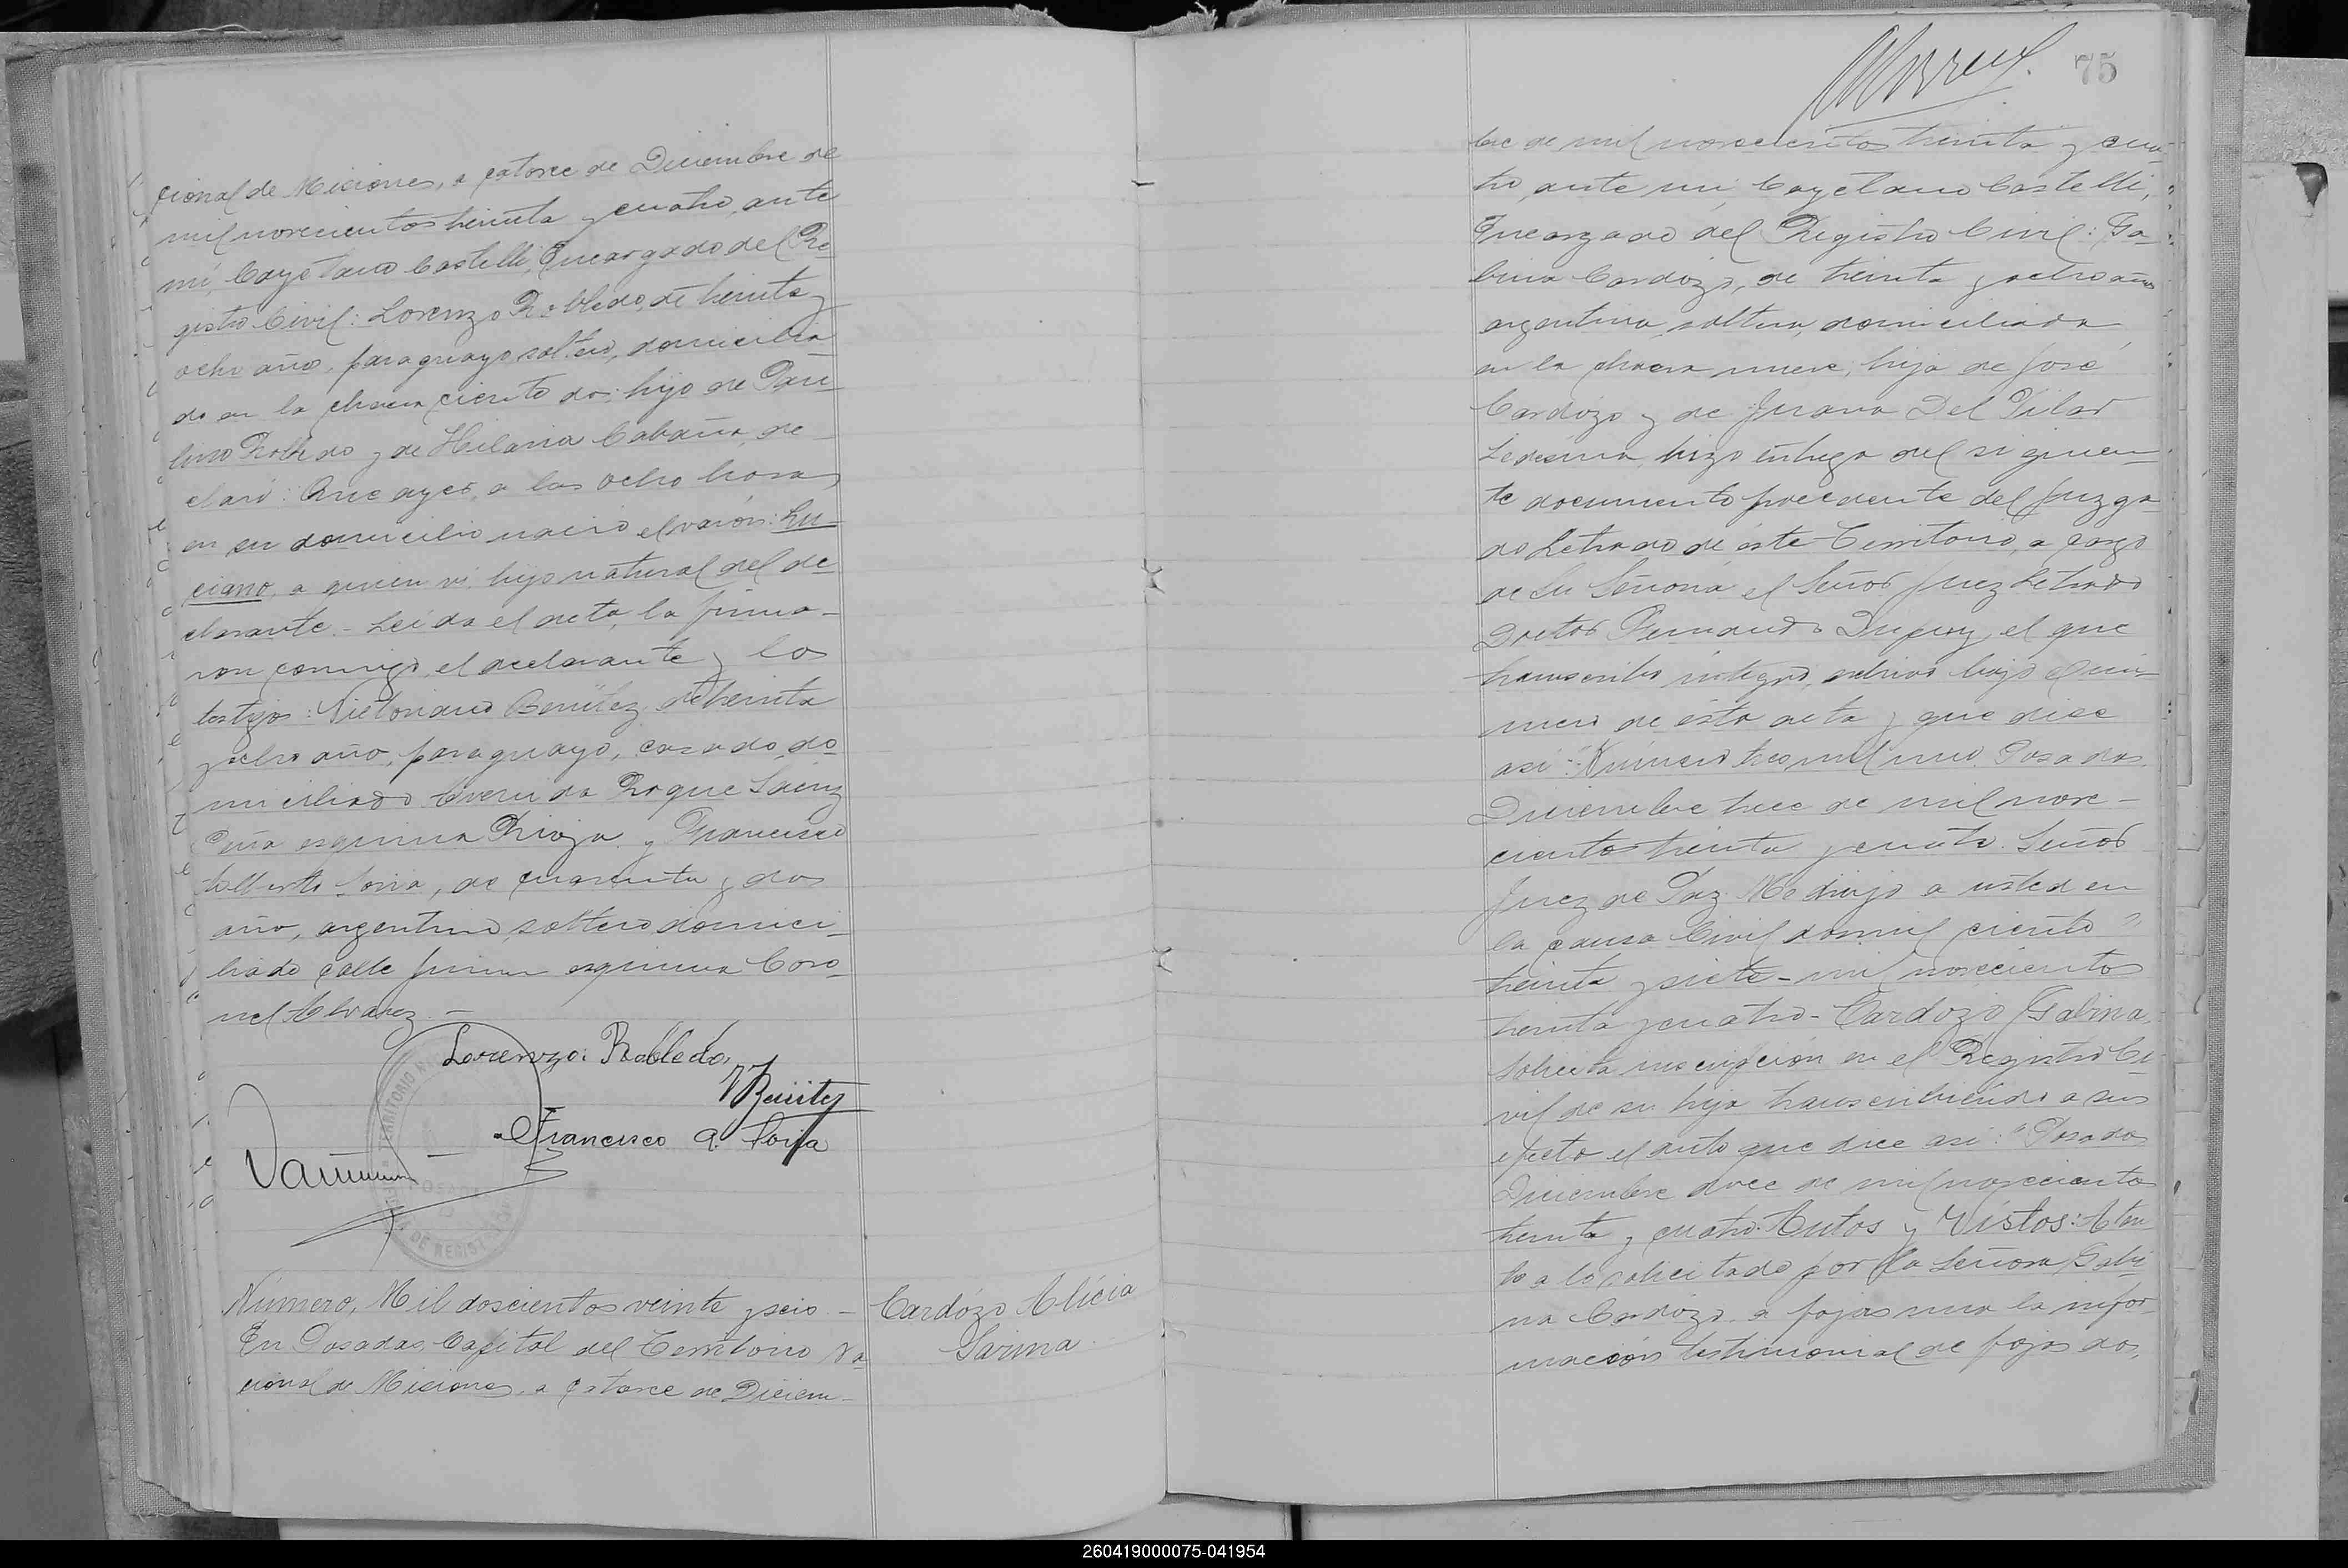 cional de Misiones, a catorce de Diciembre de
mil novecientos treinta y cuatro, ante
mí, Cayetano Castelli, Encargado del Re-
gistro Civil: Lorenzo Robledo, de treinta y
ocho años, paraguayo, soltero, domicilia-
do en la chacra ciento dos; hijo de Pau-
lino Robledo y de Hilaria Cabaña, de-
claró: Que ayer, a las ocho horas,
en su domicilio nació el varón: Lu-
ciano, a quien vi, hijo natural del de-
clarante.- Leída el acta, la firma-
ron conmigo, el declarante y los
testigos: Victoriano Benítez, de treinta
y ocho años, paraguayo, casado, do-
miciliado Avenida Roque Sáenz
Peña esquina Rioja y Francisco
Alberto Soria, de cuarenta y dos
años, argentino, soltero domici-
liado calle Junin esquina Coro-
nel Alvarez.-
Lorenzo Robledo
V Benitez
Francisco A. Soria
TERRITORIO
DE REGISTRO
Número, Mil doscientos veinte y seis.-
En Posadas, Capital del Territorio Na-
cional de Misiones, a catorce de Diciem-
Cardózo Alícia
Sarina
75
bre de mil novecientos treinta y cua-
tro, ante mí, Cayetano Castelli,
Encargado del Registro Civil: Ga-
bina Cardózo, de treinta y ocho años
argentina, soltera, domiciliada
en la chacra nueve, hija de José
Cardózo y de Juana Del Pilar
Ledesma, hizo entrega del siguien-
te documento procedente del Juzga-
do Letrado de éste Territorio, a cargo
de Su Señoría el Señor Juez Letrado
Doctor Fernando Dupuy, el que
transcribo íntegro, archivo bajo el nú-
mero de ésta acta y que dice
así: "Número tres mil uno. Posadas,
Diciembre trece de mil nove-
cientos treinta y cuatro. Señor
Juez de Paz. Me dirijo a usted en
la causa Civil dos mil ciento
treinta y siete - mil novecientos
treinta y cuatro - Cardozo Gabina,
solicita inscripción en el Registro Ci-
vil de su hija transcribiéndo a sus
efectos el auto que dice así: "Posadas
Diciembre doce de mil novecientos
treinta y cuatro. Autos y Vistos: Aten-
to a lo solicitado por la Señora Gabi-
na Cardózo a fojas una la infor-
mación testimonial de fojas dos,
260419000075-041954